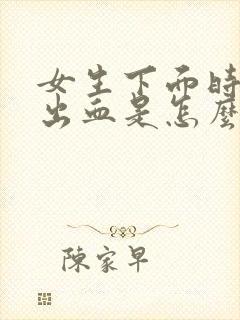 女生下面時
出血是怎麼
陳家早